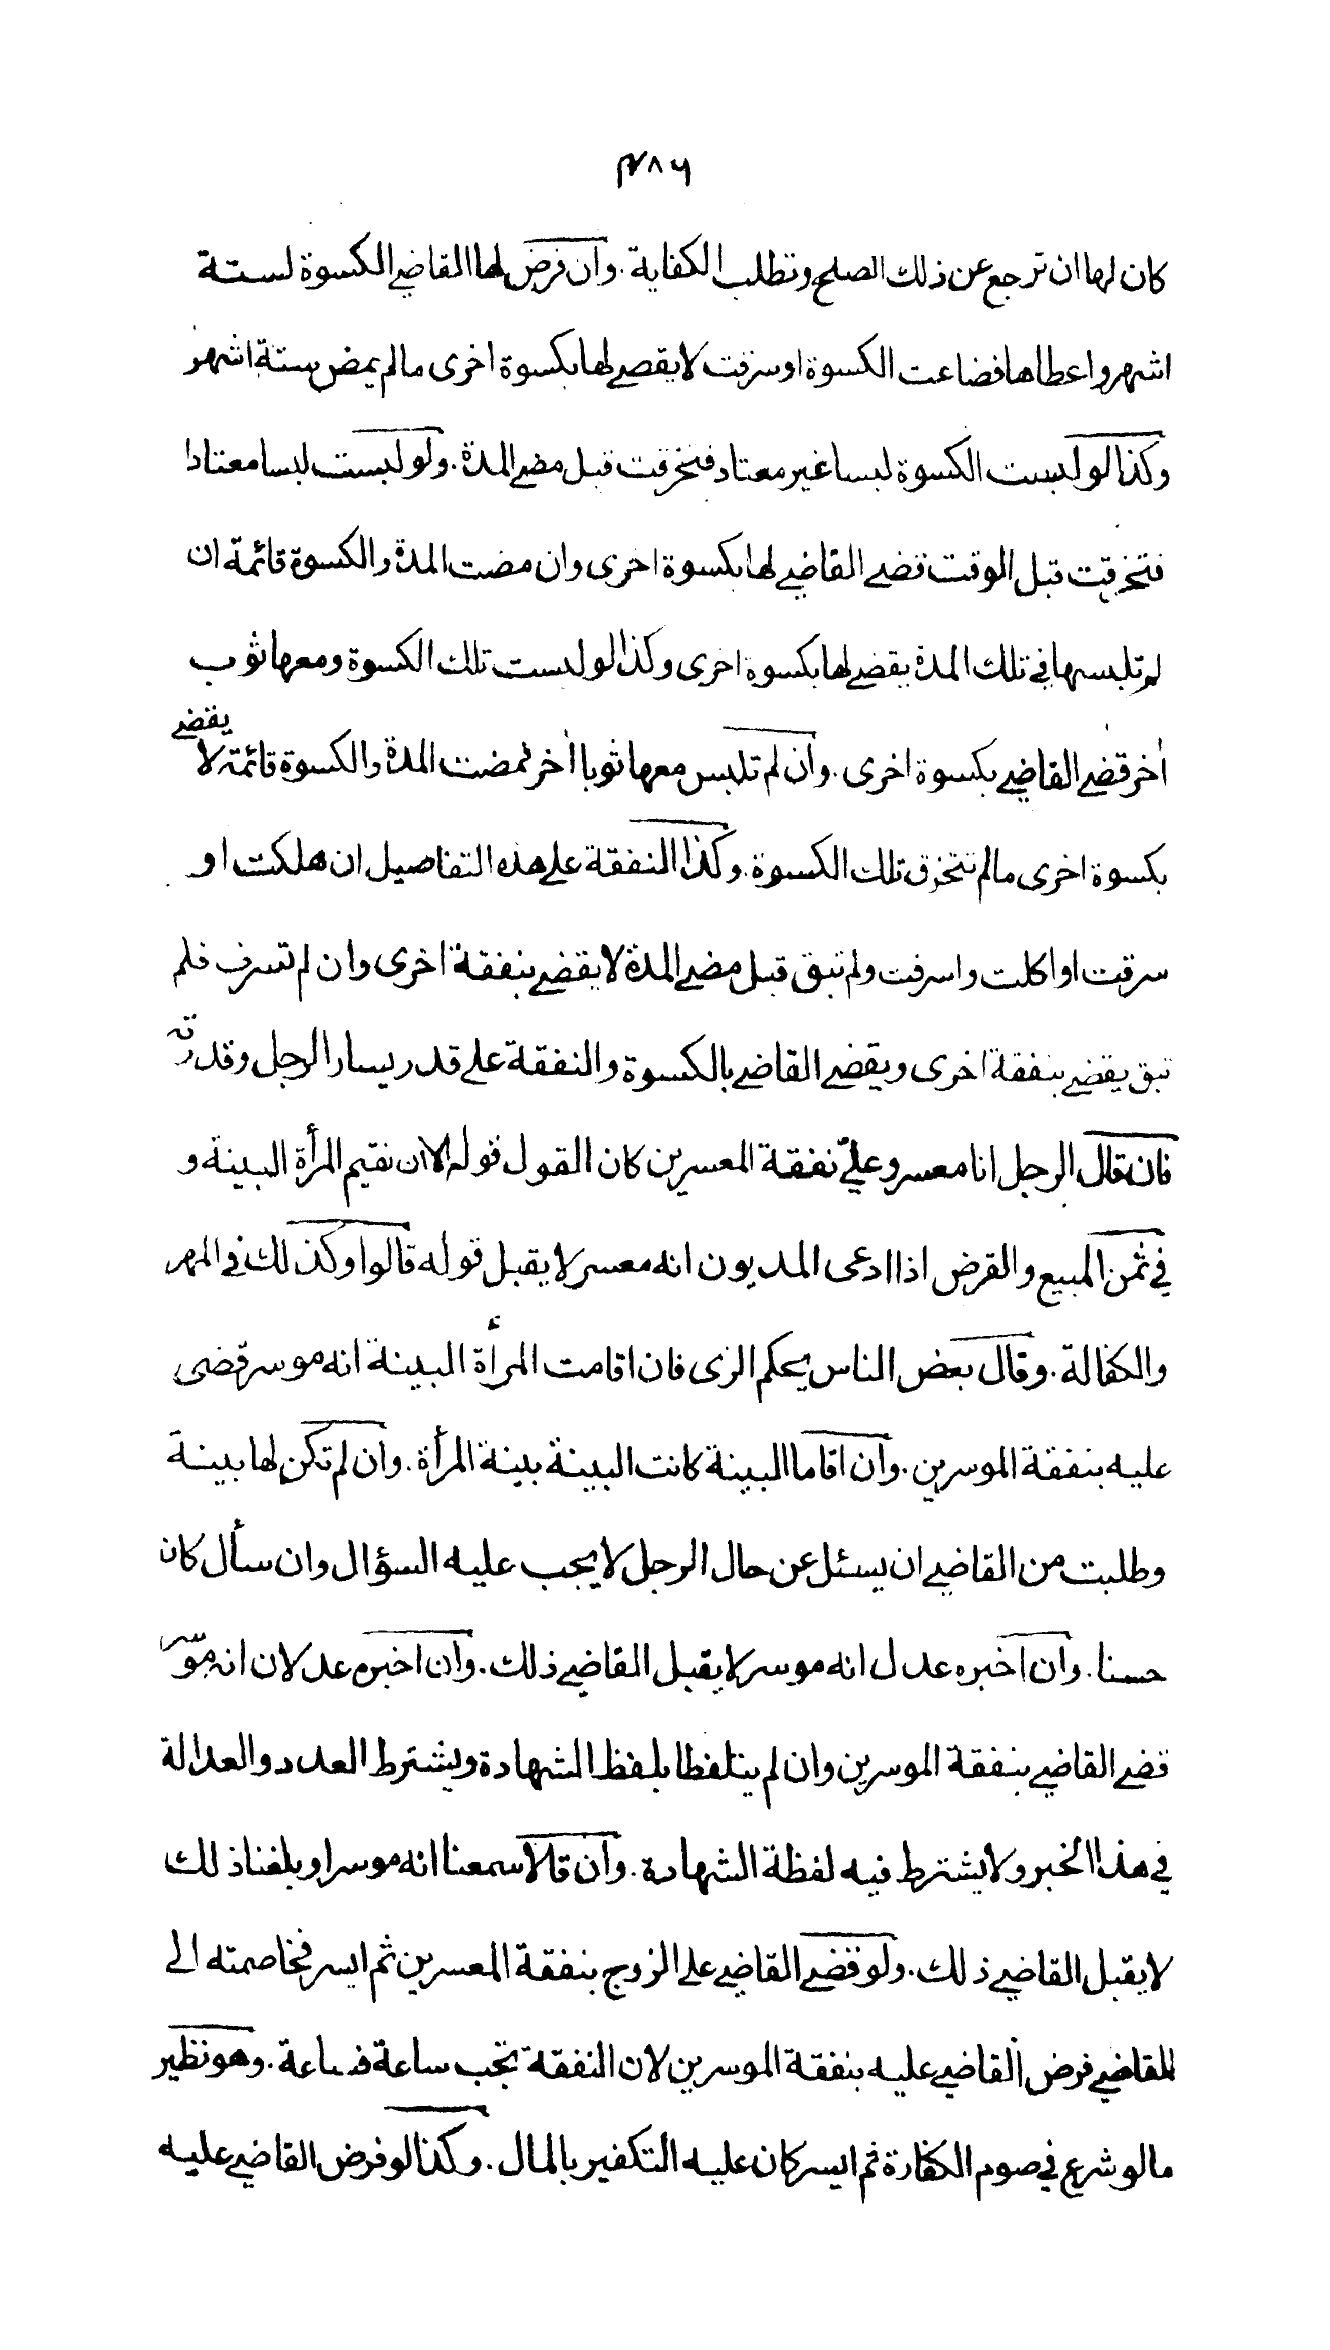 ٣٨٦
كان لها ان ترجع عن ذلك الصلح وتطلب الكفاية . وان فرض لها القاضي الكسوة لستة
اشهر واعطاها فضاعت الكسوة او سرقت لا يقضے لها بكسوة اخرى مالم يمض ستة اشهر
وكذا لو لبست الكسوة لبسا غير معتاد فتخرقت قبل مضے المدة . ولو لبست لبسا معتادا
فتخرقت قبل الوقت قضے القاضے لها بكسوة اخرى وان مضت المدة والكسوة قائمة ان
لم تلبسها في تلك المدة يقضے لها بكسوة اخرى وكذا لو لبست تلك الكسوة ومعها ثوب
أخر قضے القاضے بكسوة اخرى . وان لم تلبس معها ثوبا أخر فمضت المدة والكسوة قائمة لا يقضے
بكسوة اخرى مالم تتخرق تلك الكسوة . وكذا النفقة علے هذه التفاصيل ان هلكت او
سرقت او اكلت واسرفت ولم تبق قبل مضے المدة لا يقضے بنفقة اخرى وان لم تسرف فلم
تبق يقضے بنفقة اخرى ويقضے القاضے بالكسوة والنفقة علے قدر يسار الرجل وقدرته
فان قال الرجل انا معسر وعليّ نفقة المعسرين كان القول قوله الا ان تقيم المرأة البينة و
في ثمن المبيع والقرض اذا ادعى المديون انه معسر لا يقبل قوله قالوا وكذلك في المهر
والكفالة . وقال بعض الناس يحكم الزى فان اقامت المرأة البينة انه موسر قضى
عليه بنفقة الموسرين . وان اقاما البينة كانت البينة بينة المرأة . وان لم تكن لها بينة
وطلبت من القاضے ان يسئل عن حال الرجل لا يجب عليه السؤال وان سأل كان
حسنا . وان اخبره عدل انه موسر لا يقبل القاضے ذلك . وان اخبره عدلان انه موسر
قضے القاضے بنفقة الموسرين وان لم يتلفظا بلفظ الشهادة ويشترط العدد والعدالة
في هذا الخبر ولا يشترط فيه لفظة الشهادة . وان قالا سمعنا انه موسر او بلغنا ذلك
لا يقبل القاضے ذلك . ولو قضے القاضے علے الزوج بنفقة المعسرين ثم ايسر فخاصمته الے
القاضے فرض القاضے عليه بنفقة الموسرين لان النفقة تجب ساعة فساعة . وهو نظير
مالو شرع في صوم الكفارة ثم ايسر كان عليه التكفير بالمال . وكذا لو فرض القاضے عليه